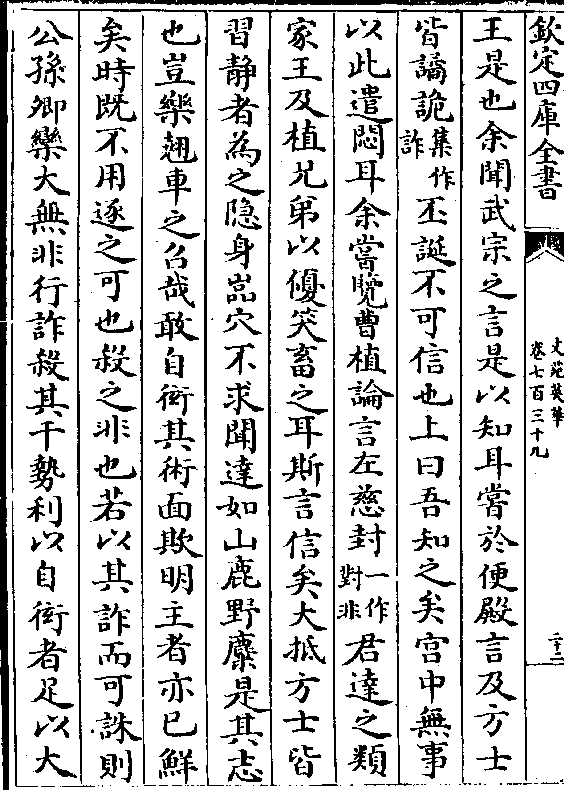 欽定四庫全書
文苑英華
卷七百三十九
二十二
王是也余聞武宗之言是以知耳嘗於便殿言及方士
皆譎詭集作詐丕誕不可信也上曰吾知之矣宫中無事
以此遣悶耳余嘗覽曹植論言左慈封一作對非君達之類
家王及植兄弟以優笑畜之耳斯言信矣大抵方士皆
習静者為之隐身巖穴不求聞達如山鹿野麋是其志
也豈樂翹車之召哉敢自衒其術面欺明主者亦已鮮
矣時既不用逐之可也殺之非也若以其詐而可誅則
公孫卿欒大無非行詐殺其干勢利以自衒者足以大